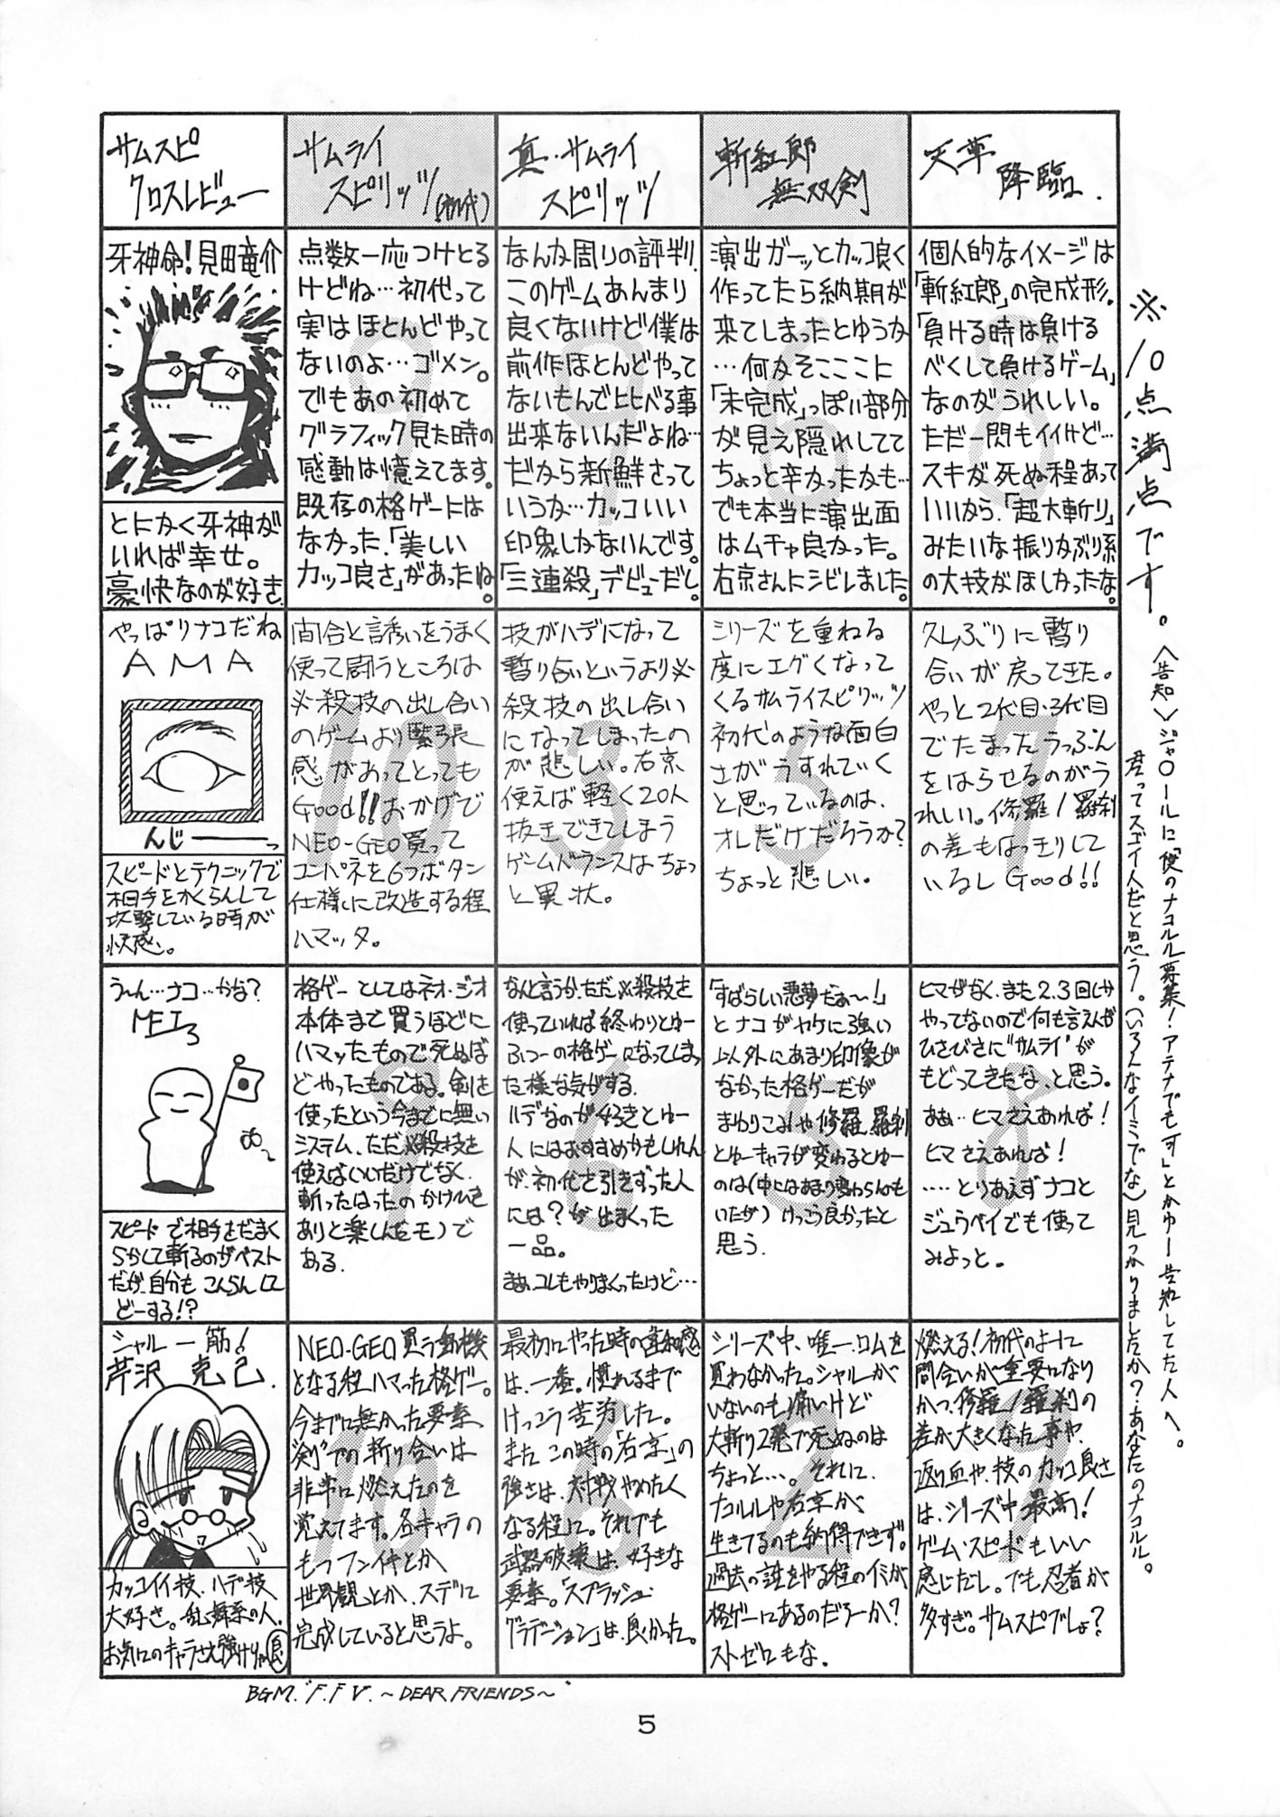 サムスピ
クロスレビュー
サムライ
スピリッツ(初代)
真・サムライ
スピリッツ
斬紅郎
無双剣
天草
降臨
牙神命!見田竜介
とにかく牙神が
いれば幸せ。
豪快なのが好き
点数一応つけとる
けどね…初代って
実はほとんどやって
ないのよ…ゴメン。
でもあの初めて
グラフィック見た時の
感動は憶えてます。
既存の格ゲーには
なかった、「美しい
カッコ良さ」があったね。
9
なんか周りの評判、
このゲームあんまり
良くないけど僕は
前作ほとんどやって
ないもんで比べる事
出来ないんだよね…
だから新鮮さって
いうか…カッコいい
印象しかないんです。
「三連殺」デビューだし。
9
演出ガーッとカッコ良く
作ってたら納期が
来てしまったとゆうか
…何かそこここに
「未完成」っぽい部分
が見え隠れしてて
ちょっと辛かったかも…
でも本当に演出面
はムチャ良かった。
右京さんにシビレました。
6
個人的なイメージは
「斬紅郎」の完成形。
「負ける時は負ける
べくして負けるゲーム」
なのがうれしい。
ただ一閃もイイけど…
スキが死ぬ程あって
いいから、「超大斬り」
みたいな振りかぶり系
の大技がほしかったな。
8
やっぱりナコだね
AMA
んじーーっ
スピードとテクニックで
相手をかくらんして
攻撃している時が
快感。
間合と誘いをうまく
使って闘うところは
必殺技の出し合い
のゲームより緊張
感があってとっても
Good!!おかげで
NEO-GEO買って
コンパネを6つボタン
仕様に改造する程
ハマッタ。
10
技がハデになって
斬り合いというより必
殺技の出し合い
になってしまったの
が悲しい。右京
使えば軽く20人
抜きできてしまう
ゲームバランスはちょっ
と異状。
3
シリーズを重ねる
度にエグくなって
くるサムライスピリッツ
初代のような面白
さがうすれていく
と思っているのは、
オレだけだろうか?
ちょっと悲しい。
5
久しぶりに斬り
合いが戻ってきた。
やっと2代目・3代目
でたまったうっぷん
をはらせるのがう
れしい。修羅/羅刹
の差もはっきりして
いるしGood!!
7
う〜ん…ナコ…かな?
スピードで相手をだまく
らかして斬るのがベスト
だが、自分もこんらんして
どーする!?
格ゲーとしてはネオ・ジオ
本体まで買うほどに
ハマッたもので死ぬほ
どやったものである。剣を
使ったという今までに無い
システム、ただ必殺技を
使えばいいだけでなく、
斬ったはったのかけひきも
ありと楽しんだモノで
ある。
9
なんと言うか、ただ必殺技を
使っていれば終わりとゆー
ふつーの格ゲーになってしまっ
た様な気がする。
ハデなのが好きとゆー
人にはおすすめかもしれん
が、初代を引きずった人
には?が出まくった
一品。
まぁ、コレもやりまくったけど…
6
「すばらしい悪夢だぁ〜!」
とナコがヤケに強い
以外にあまり印像が
なかった格ゲーだが
まわりこみや修羅、羅刹
とゆーキャラが変わるとゆー
のは(中にはあまり変わらんのも
いたが)けっこう良かったと
思う。
5
ヒマがなく、まだ2.3回しか
やってないので何も言えんが
ひさびさに“サムライ”が
もどってきたな、と思う。
あぁ…ヒマさえあれば!
ヒマさえあれば!
……とりあえずナコと
ジュウベイでも使って
みよっと。
8
シャル一筋!
芹沢 克己.
カッコイイ技、ハデ技
大好き。乱舞系の人。
お気にのキャラさえ強けりゃ良
NEO-GEO買う動機
となる程ハマった格ゲー。
今までに無かった要素、
“剣”での斬り合いは
非常に燃えたのを
覚えてます。各キャラの
もつフンイキとか
世界観とか、スデに
完成していると思うよ。
10
最初にやった時の違和感
は、一番。慣れるまで
けっこう苦労した。
また この時の「右京」の
強さは、対戦やめたく
なる程に。それでも
武器破壊は、好きな
要素。「スプラッシュ
グラデーション」は、良かった。
6
シリーズ中、唯一、ロムを
買わなかった。シャルが
いないのも痛いけど
大斬り2発で死ぬのは
ちょっと…。それに、
ナコルルや右京が、
生きてるのも納得できず。
過去の話をやる程のイミが
格ゲーにあるのだろーか?
ストゼロもな。
2
燃える!初代のよーに
間合いが重要になり
かつ、修羅/羅刹の
差が大きくなった事や、
返り血や、技のカッコ良さ
は、シリーズ中最高!
ゲーム・スピードもいい
感じだし。でも忍者が
多すぎ。サムスピでしょ?
※10点満点です。
〈告知〉ジャ○ールに「使のナコルル募集!アテナでも可」とかゆー告知してた人へ。
君ってスゴイ人だと思う。(いろんなイミでな)見つかりましたか?あなたのナコルル。
BGM. "F.F V. 〜DEAR FRIENDS〜"
5